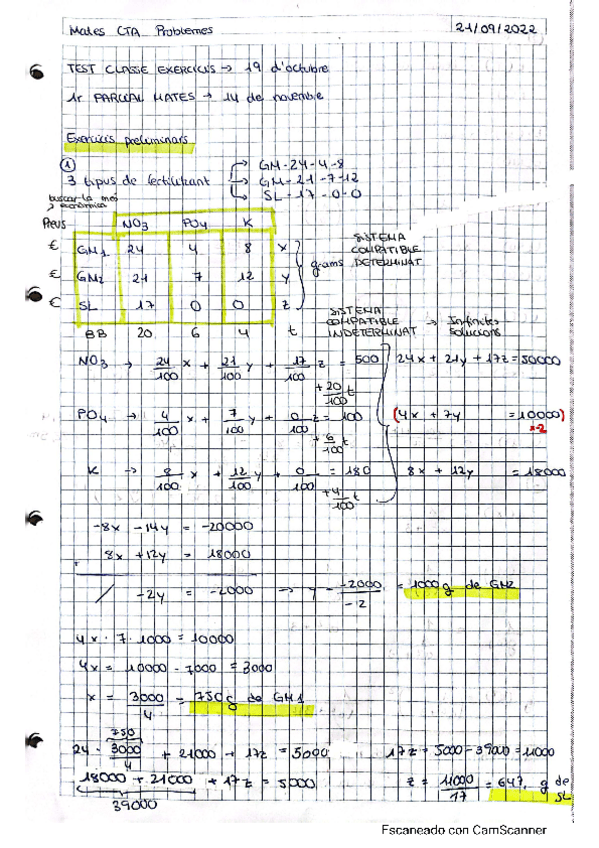 Mates CTA Problemes 21/09/2022
TEST CLASSE EXERCICIS → 19 d'octubre
1r PARCIAL MATES → 14 de novembre
Exercicis preliminars
① GM-24-4-8
3 tipus de fertilitzant → GM-21-7-12
SL-17-0-0
buscar la més
econòmica
Preus NO3 PO4 K
€ GM1 24 4 8 x
€ GM2 21 7 12 y
€ SL 17 0 0 z
BB 20 6 4 t
grams
SISTEMA
COMPATIBLE
DETERMINAT
SISTEMA
COMPATIBLE
INDETERMINAT → Infinites
Solucions
NO3 → 24/100 x + 21/100 y + 17/100 z = 500 24x + 21y + 17z = 50000
+ 20/100 t
PO4 → 4/100 x + 7/100 y + 0/100 z = 100 (4x + 7y = 10000)
x-2
+ 6/100 t
K → 8/100 x + 12/100 y + 0/100 = 180 8x + 12y = 18000
+ 4/100 t
-8x - 14y = -20000
8x + 12y = 18000
/ -2y = -2000 → y = -2000/-2 = 1000 g de GM2
4x · 7 · 1000 = 10000
4x = 10000 - 7000 = 3000
x = 3000/4 = 750g de GM1
750
24 · 3000/4 + 21000 + 17z = 5000 17z = 5000 - 39000 = 11000
18000 + 21000 + 17z = 5000 z = 11000/17 = 647, g de
SL
39000
Escaneado con CamScanner